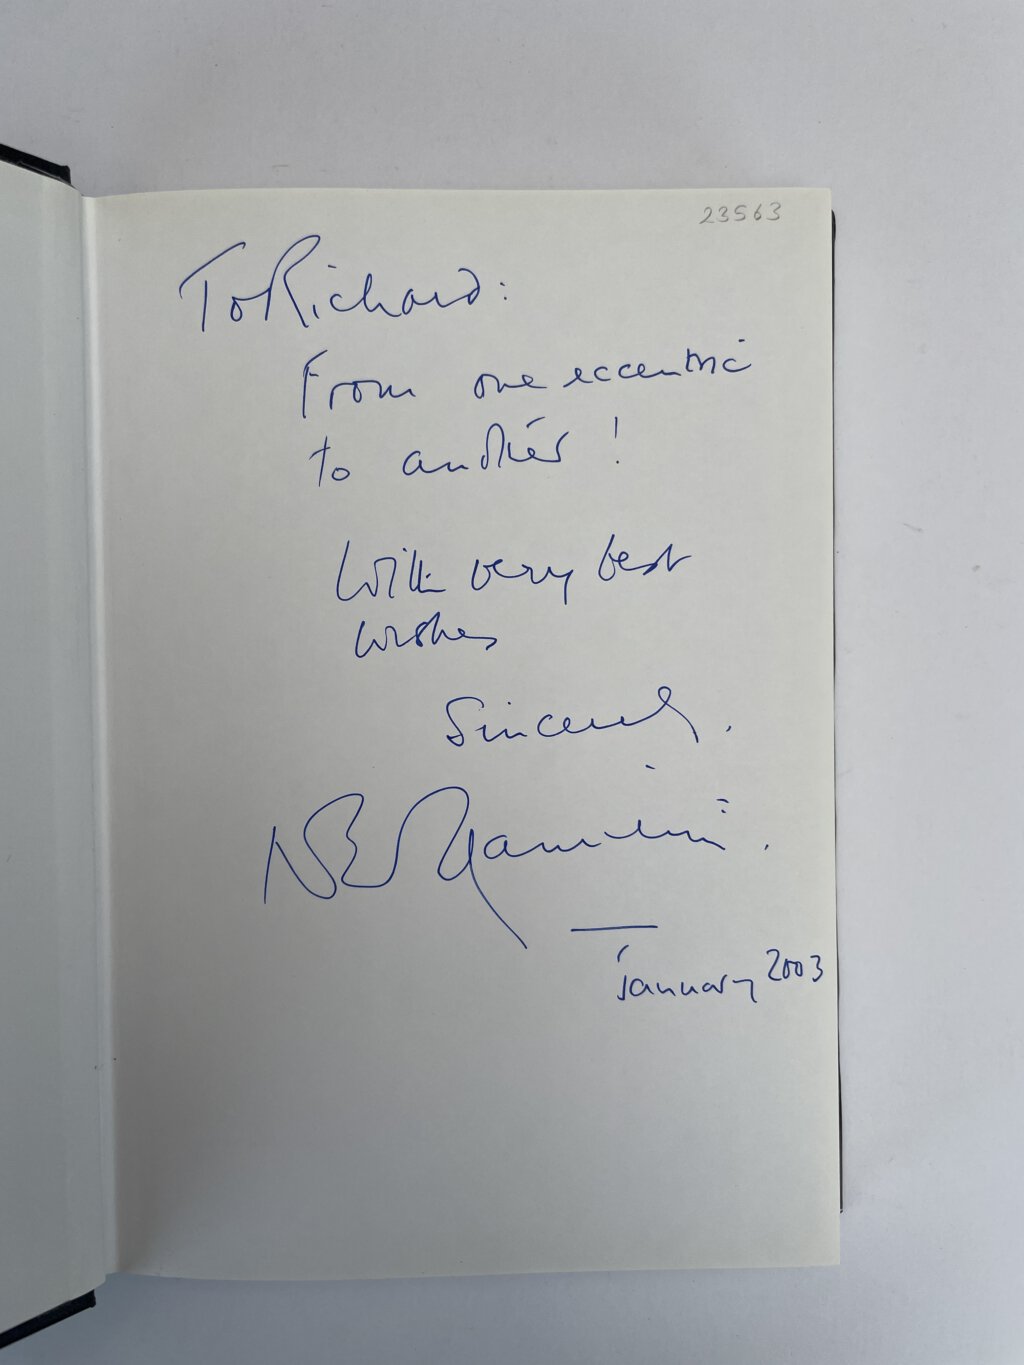 23563
To Richard:
From one eccentric
to another!
With very best
wishes
Sincerely.
January 2003